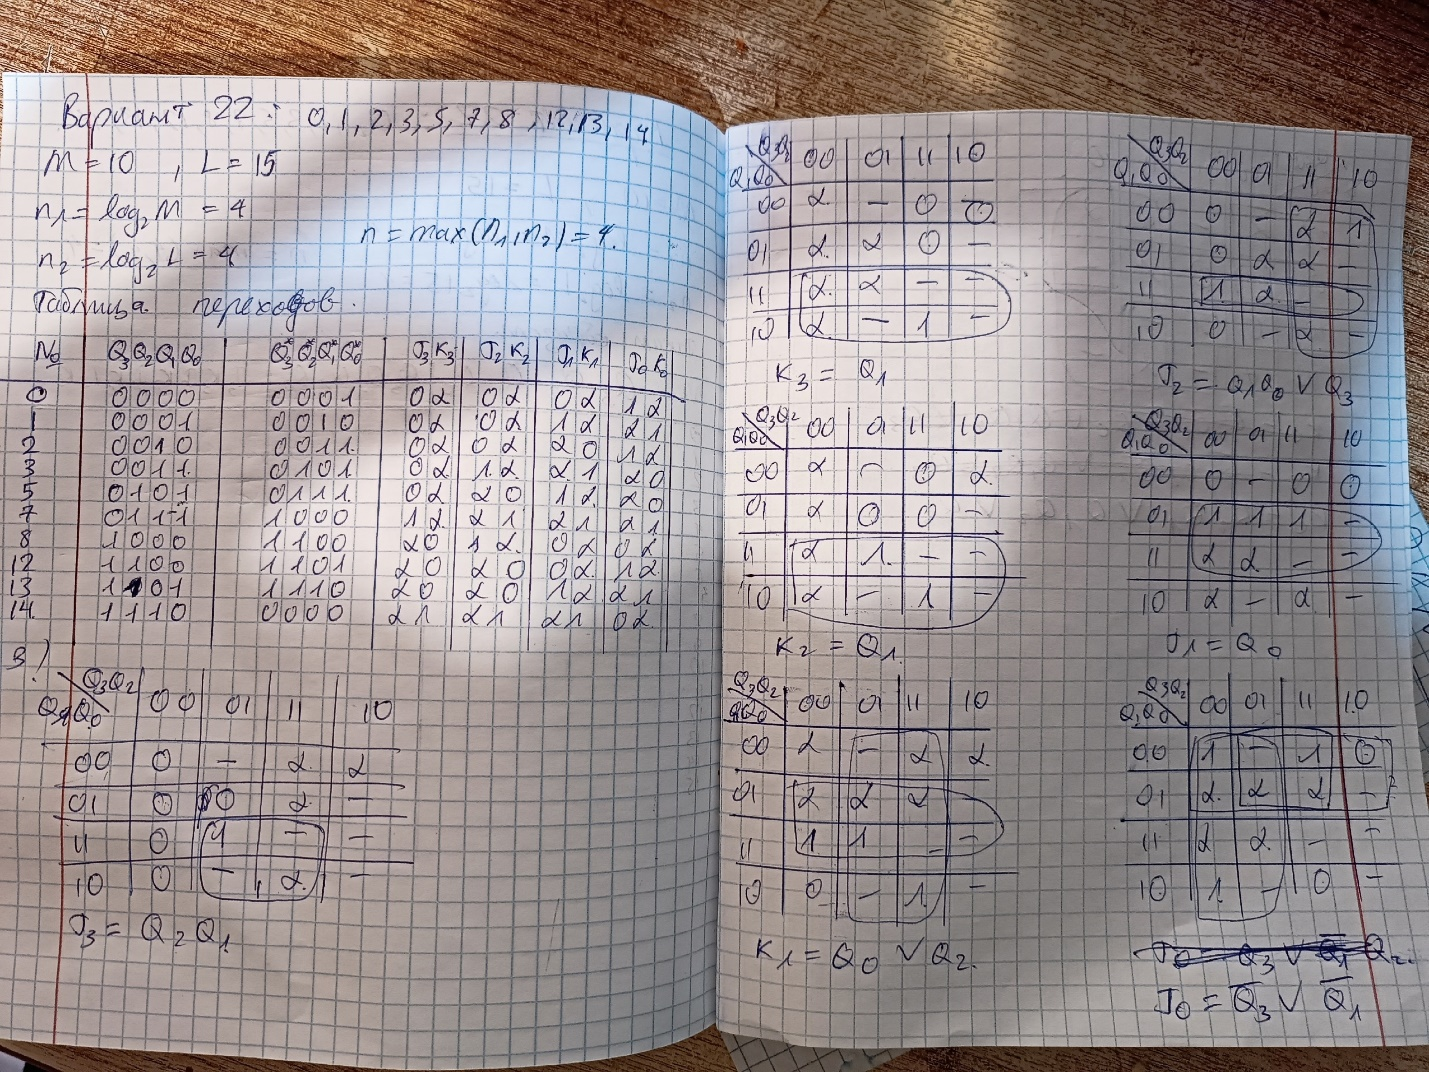 Вариант 22: 0, 1, 2, 3, 5, 7, 8, 12, 13, 14
M = 10 , L = 15
n1 = log2 M = 4
n = max(n1, n2) = 4.
n2 = log2 L = 4
Таблица переходов.
№ Q3 Q2 Q1 Q0 Q3* Q2* Q1* Q0* J3 K3 J2 K2 J1 K1 J0 K0
0 0000 0001 0α 0α 0α 1α
1 0001 0010 0α 0α 1α α1
2 0010 0011 0α 0α α0 1α
3 0011 0101 0α 1α α1 α0
5 0101 0111 0α α0 1α α0
7 0111 1000 1α α1 α1 α1
8 1000 1100 α0 1α 0α 0α
12 1100 1101 α0 α0 0α 1α
13 1101 1110 α0 α0 1α α1
14 1110 0000 α1 α1 α1 0α
3)
Q3Q2 00 01 11 10
Q1Q0
00 0 - α α
01 0 0 α -
11 0 1 - -
10 0 - α -
J3 = Q2 Q1
Q3Q2 00 01 11 10
Q1Q0
00 α - 0 0
01 α α 0 -
11 α α - -
10 α - 1 -
K3 = Q1
Q3Q2 00 01 11 10
Q1Q0
00 0 - α 1
01 0 α α -
11 1 α -
10 0 - α -
J2 = Q1Q0 ∨ Q3
Q3Q2 00 01 11 10
Q1Q0
00 α - 0 α
01 α 0 0 -
11 α 1 - -
10 α - 1 -
K2 = Q1
Q3Q2 00 01 11 10
Q1Q0
00 0 - 0 0
01 1 1 1 -
11 α α - -
10 α - α -
J1 = Q0
Q3Q2 00 01 11 10
Q1Q0
00 α - α α
01 α α α -
11 1 1 - -
10 0 - 1 -
K1 = Q0 ∨ Q2.
Q3Q2 00 01 11 10
Q1Q0
00 1 - 1 0
01 α α α -
11 α α - -
10 1 - 0 -
J0 = Q̅3 ∨ Q̅1